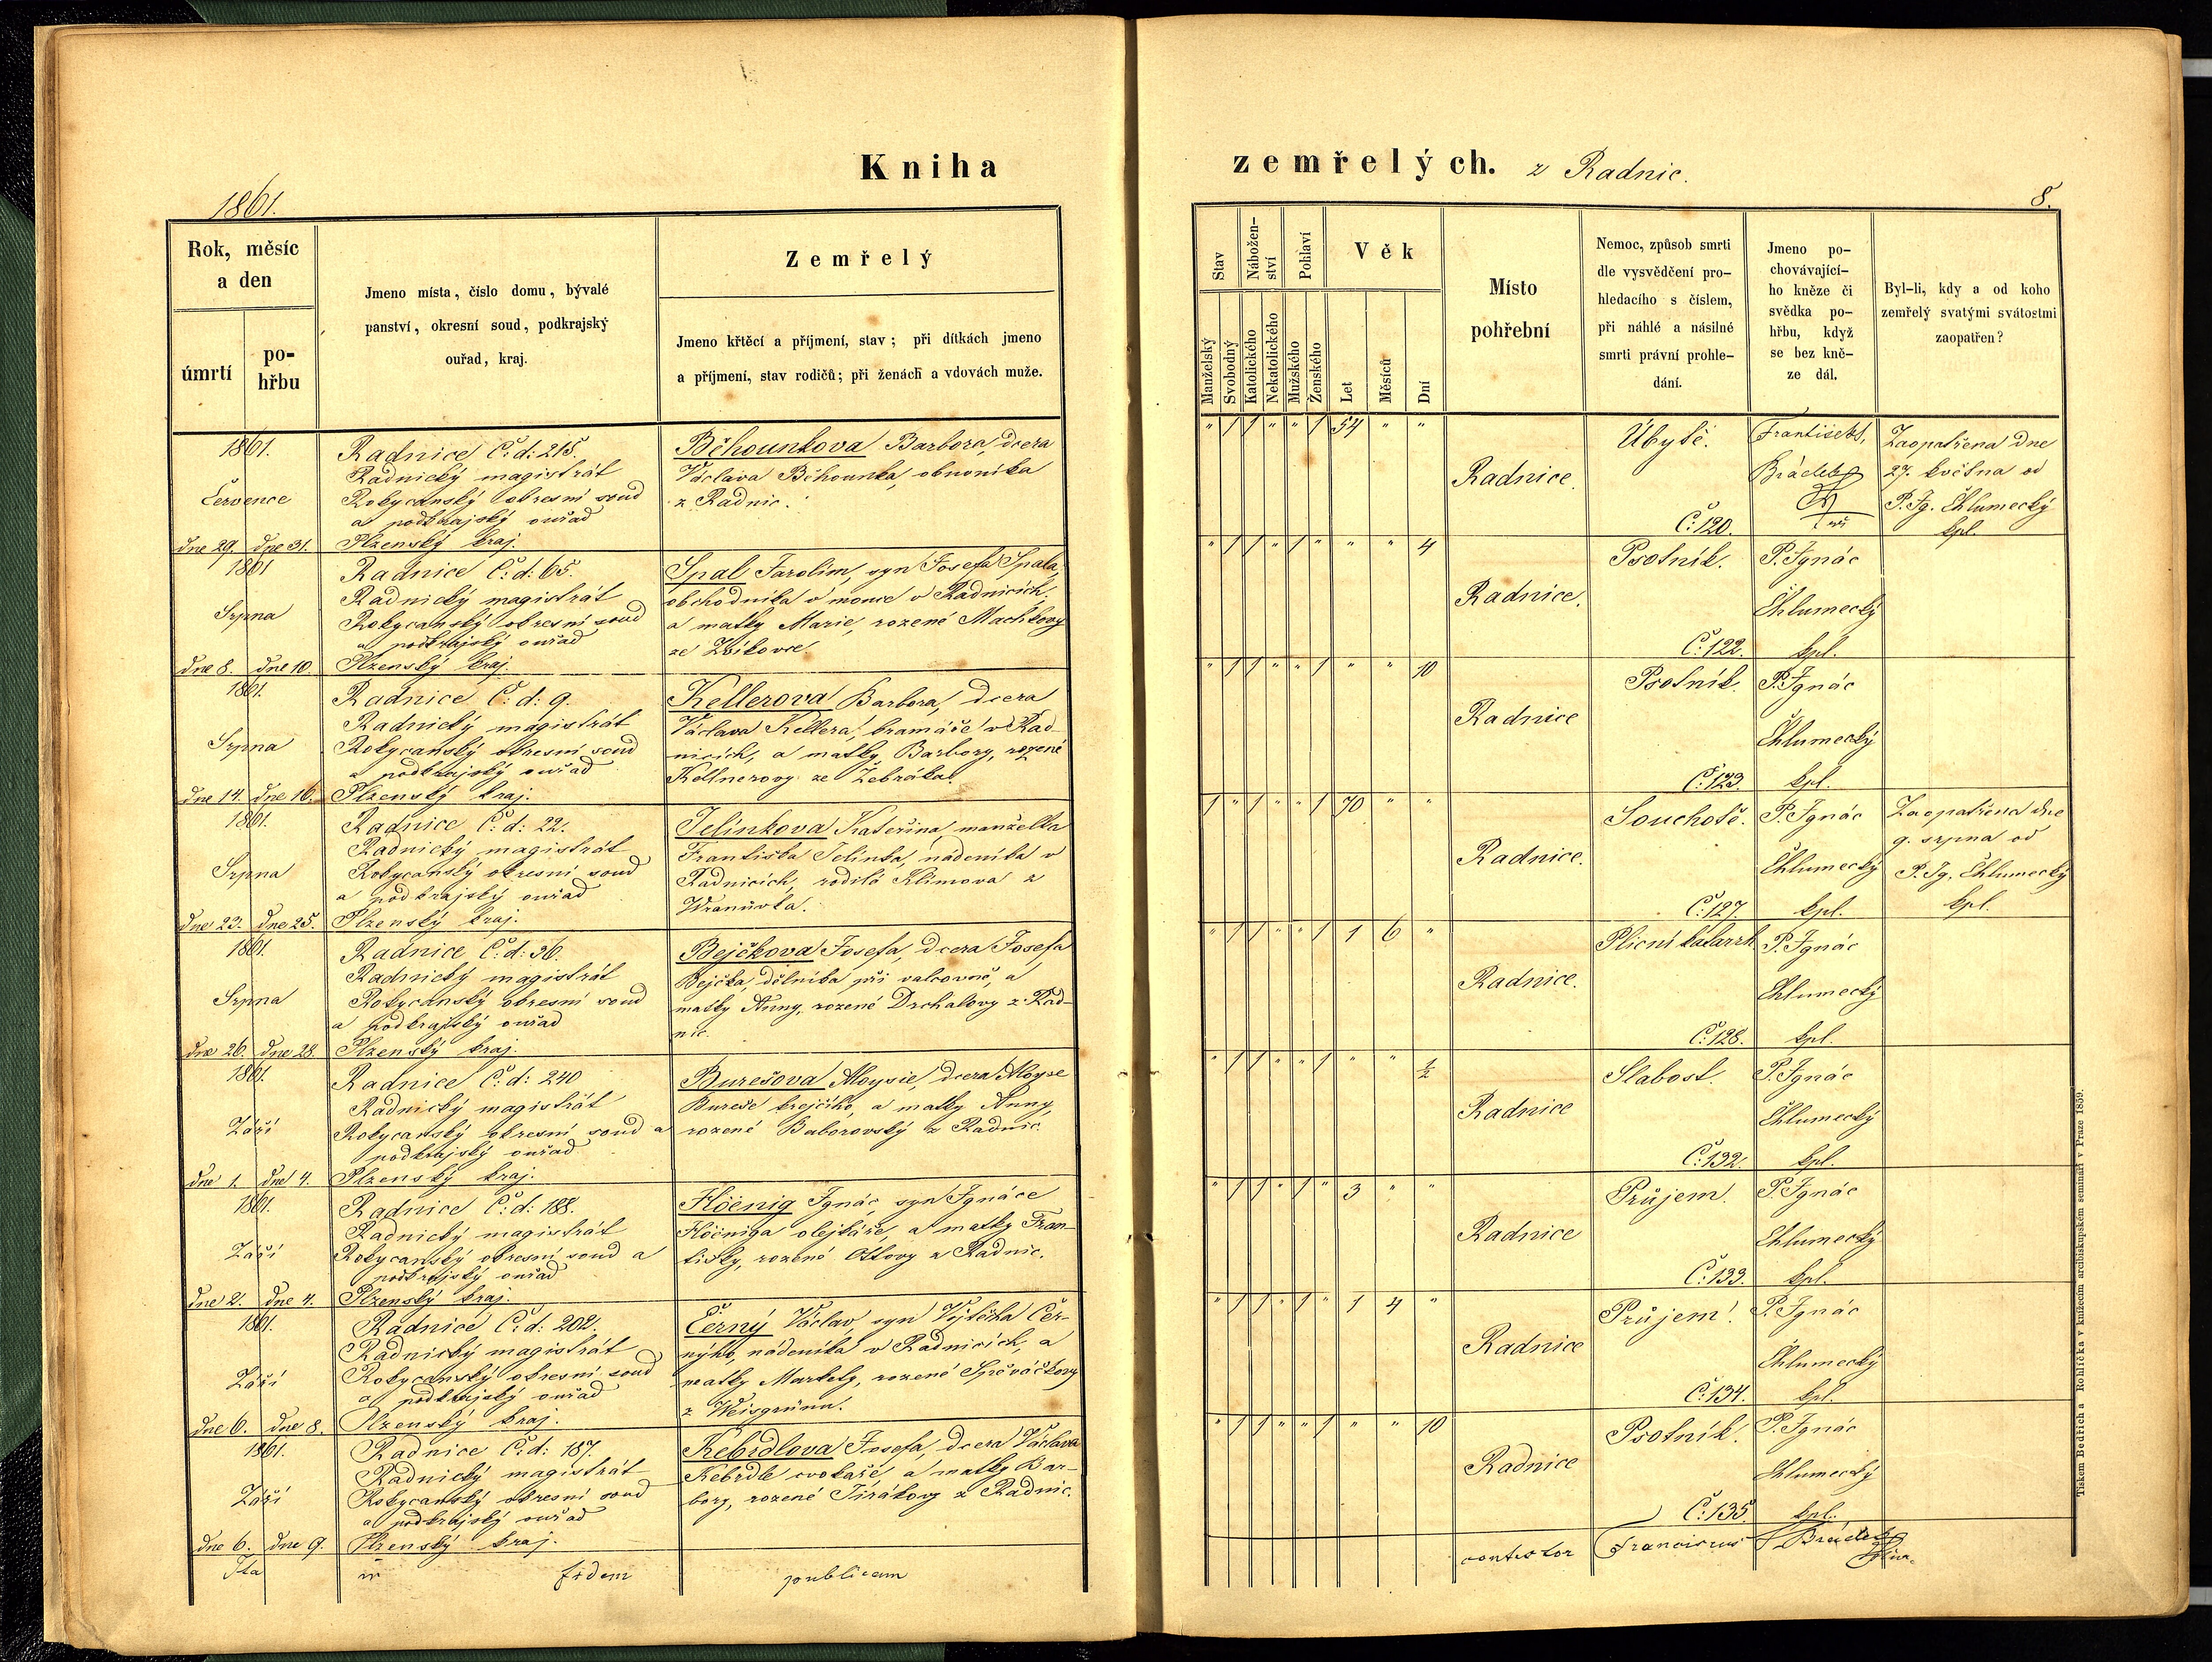 Kniha
zemřelých. z Radnic.
1861.
8.
Rok, měsíc
a den
úmrtí
po-
hřbu
Jmeno místa, číslo domu, bývalé
panství, okresní soud, podkrajský
ouřad, kraj.
Zemřelý
Jmeno křtěcí a příjmení, stav; při dítkách jmeno
a příjmení, stav rodičů; při ženách a vdovách muže.
Stav
Nábožen-
ství
Pohlaví
Věk
Manželský
Svobodný
Katolického
Nekatolického
Mužského
Ženského
Let
Měsíců
Dní
Místo
pohřební
Nemoc, způsob smrti
dle vysvědčení pro-
hledacího s číslem,
při náhlé a násilné
smrti právní prohle-
dání.
Jmeno po-
chovávající-
ho kněze či
svědka po-
hřbu, když
se bez kně-
ze dál.
Byl-li, kdy a od koho
zemřelý svatými svátostmi
zaopatřen?
1861.
Července
dne 29. dne 31.
Radnice Č: d: 215.
Radnický magistrát
Rokycanský okresní soud
a podkrajský ouřad
Plzenský kraj.
Běhounkova Barbora, dcera
Václava Běhounka, obuvníka
z Radnic.
" 1 1 " " 1 54 " "
Radnice.
Úbytě.
Č: 120.
František
Brádek
Zaopatřena dne
27. května od
P. Ig. Chlumecký
kpl.
1861
Srpna
dne 8. dne 10.
Radnice Č: d: 65.
Radnický magistrát
Rokycanský okresní soud
a podkrajský ouřad
Plzenský kraj.
Spal Jarolím, syn Josefa Spala,
obchodníka v mouce v Radnicích,
a matky Marie, rozené Machkovy
ze Zvíkovce.
" 1 1 " 1 " " " 4
Radnice.
Psotník.
Č: 122.
P. Ignác
Chlumecký
kpl.
1861.
Srpna
dne 14. dne 16.
Radnice Č: d: 9.
Radnický magistrát
Rokycanský okresní soud
a podkrajský ouřad
Plzenský kraj.
Kellerova Barbora, dcera
Václava Kellera, kramáře v Rad-
nicích, a matky Barbory, rozené
Kellnerovy ze Žebráka.
" 1 1 " " 1 " " 10
Radnice
Psotník.
Č: 123.
P. Ignác
Chlumecký
kpl.
1861.
Srpna
dne 23. dne 25.
Radnice Č: d: 22.
Radnický magistrát
Rokycanský okresní soud
a podkrajský ouřad
Plzenský kraj.
Jelínkova Kateřina, manželka
Františka Jelínka, nádeníka v
Radnicích, rodilá Klímova z
Wranůvka.
1 " 1 " " 1 70 " "
Radnice.
Souchotě.
Č: 127.
P. Ignác
Chlumecký
kpl.
Zaopatřena dne
9. srpna od
P. Ig. Chlumecký
kpl.
1861.
Srpna
dne 26. dne 28.
Radnice Č: d: 36.
Radnický magistrát
Rokycanský okresní soud
a podkrajský ouřad
Plzenský kraj.
Bejčkova Josefa, dcera Josefa
Bejčka, dělníka při valcovně, a
matky Anny, rozené Drchalovy z Rad-
nic.
" 1 1 " " 1 1 6 "
Radnice.
Plicní katarrh.
Č: 128.
P. Ignác
Chlumecký
kpl.
1861.
Září
dne 1. dne 4.
Radnice Č: d: 240
Radnický magistrát
Rokycanský okresní soud a
podkrajský ouřad
Plzenský kraj.
Burešova Aloysie, dcera Aloyse
Bureše krejčího, a matky Anny,
rozené Baborovský z Radnic.
" 1 1 " " 1 " " ½
Radnice
Slabost.
Č: 132.
P. Ignác
Chlumecký
kpl.
1861.
Září
dne 2. dne 4.
Radnice Č: d: 188.
Radnický magistrát
Rokycanský okresní soud a
podkrajský ouřad
Plzenský kraj.
Höenig Ignác, syn Ignáce
Höeniga olejkáře, a matky Fran-
tišky, rozené Ottovy z Radnic.
" 1 1 " 1 " 3 " "
Radnice
Průjem.
Č: 133.
P. Ignác
Chlumecký
kpl.
1861.
Září
dne 6. dne 8.
Radnice Č: d: 202.
Radnický magistrát
Rokycanský okresní soud
a podkrajský ouřad
Plzenský kraj.
Černý Václav, syn Vojtěcha Čer-
nýho, nádeníka v Radnicích, a
matky Markety, rozené Spěváčkovy
z Weisgrünu.
" 1 1 " 1 " 1 4 "
Radnice
Průjem.
Č: 134.
P. Ignác
Chlumecký
kpl.
1861.
Září
dne 6. dne 9.
Radnice Č: d: 187.
Radnický magistrát
Rokycanský okresní soud
a podkrajský ouřad
Plzenský kraj.
Kebrdlova Josefa, dcera Václava
Kebrdle cvokaře, a matky Bar-
bory, rozené Jirákovy z Radnic.
" 1 1 " " 1 " " 10
Radnice
Psotník.
Č: 135.
P. Ignác
Chlumecký
kpl.
Ita in fidem publicam
contestor Franciscus Brádek
Tiskem Bedřicha Rohlíčka v knížecím arcibiskupském semináři v Praze 1859.